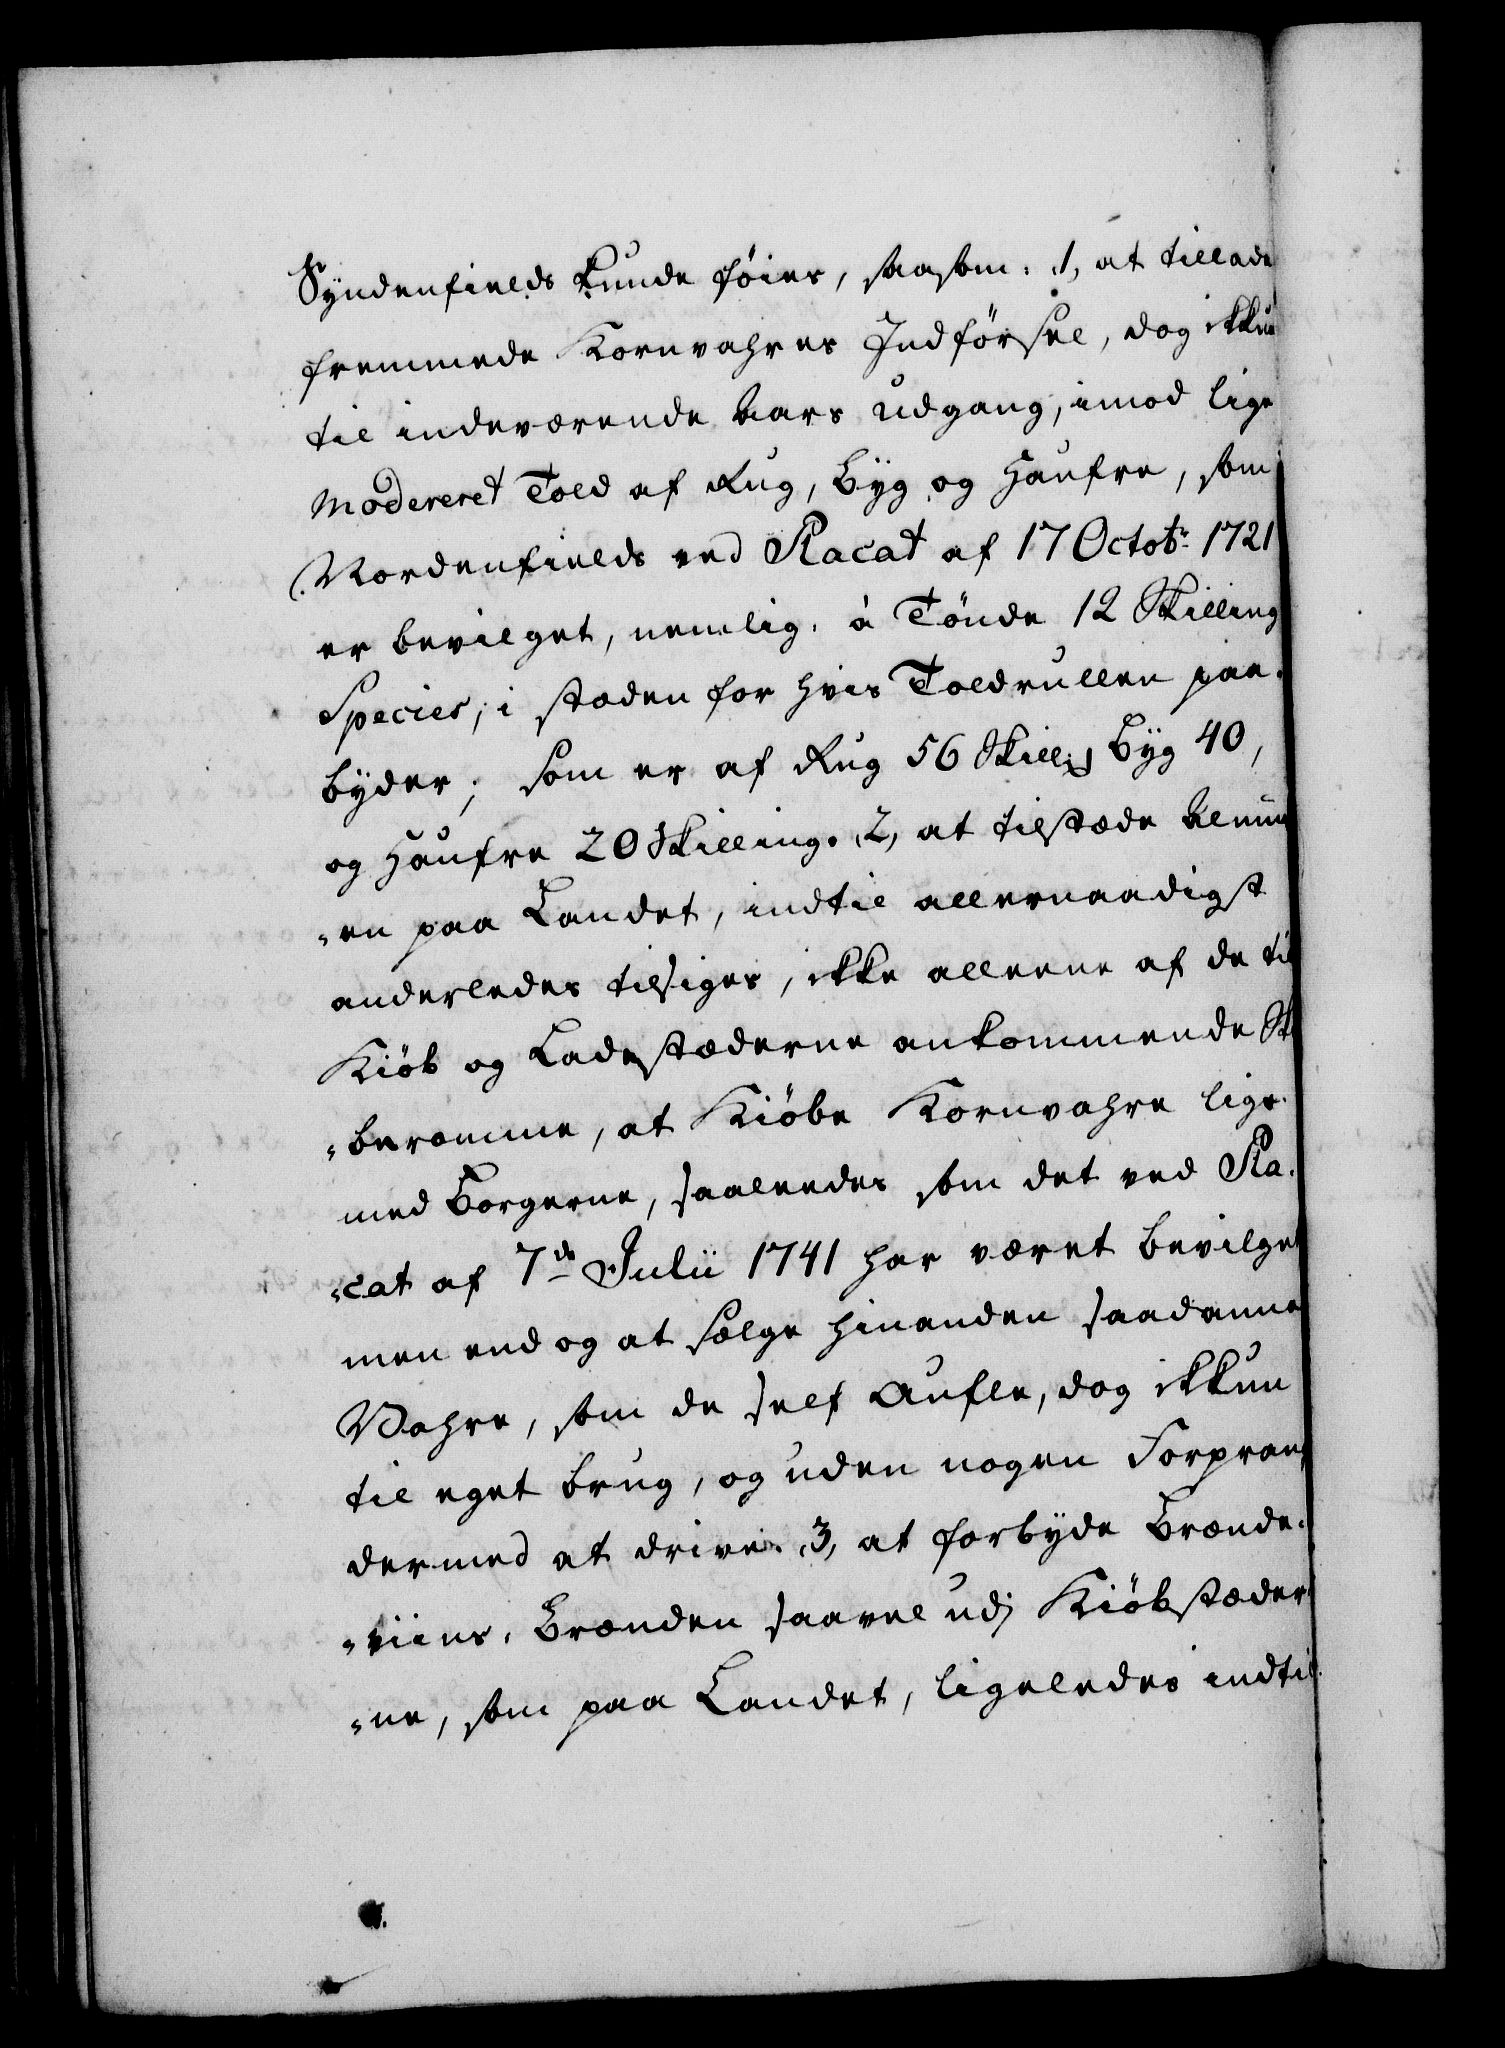 Syndenfields kunde føies, saasom: 1, at tillade
fremmede Kornvahres Indførsel, dog ikkun
til indeværende Aars udgang, imod lige
modereret Told af Rug, Byg og Haufre, som
Nordenfields ved Placat af 17 Octobr. 1721
er bevilget, nemlig: à Tønde 12 Skilling
Species, i stæden for hvis Toldrullen paa-
byder; som er af Rug 56 Skill: Byg 40,
og Haufre 20 Skilling. 2, at tilstæde Almu
-en paa Landet, indtil allernaadigst
anderledes tilsiges, ikke alleene af de til
Kiøb og Ladestæderne ankommende Sk
-beromme, at Kiøbe Kornvahre lige
med Borgerne, saaleedes som det ved Pla-
-cat af 7de Julii 1741 har været bevilget
men end og at sælge hinanden saadanne
Vahre, som de self aufle, dog ikkun
til eget brug, og uden nogen Forprang
dermed at drive. 3, at forbyde Brænde-
-viins-Brænden saavel udj Kiøbstæder-
-ne, som paa Landet, ligeledes indtil